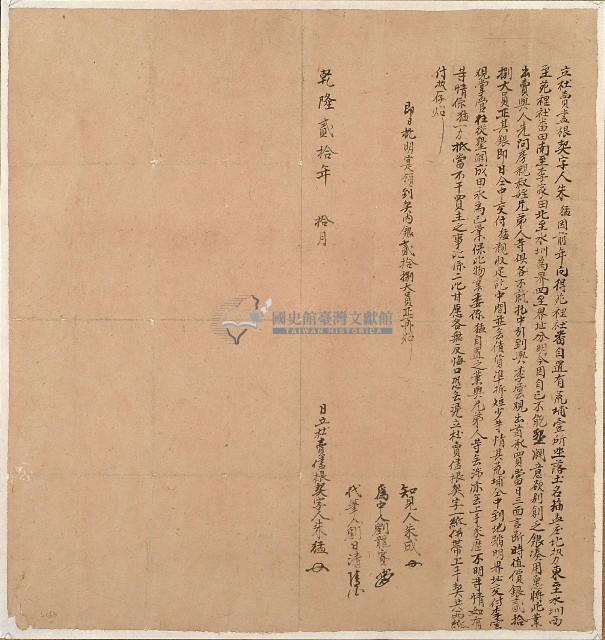 立杜賣盡根契字人朱猛因前年向得苑裡社番自置有荒埔壹所坐落土名
至苑裡社番田南至李家田北至水圳為界四至界址分明今因自己不能墾闢意欲別創乏銀湊用愿將此業
出賣與人先問房親叔姪兄弟人等俱各不就托中引到與李雲觀出首承買當日三面言斷時值價銀貳拾
捌大員正其銀即日仝中交付猛親收足訖中間並無債貨準折短少等情其荒埔仝中到地踏明界址交付李雲
觀掌管任從墾闢成田永為己業保此物業委係猛自置之業與兄弟人等無涉亦無上手來歷不明等情如有
等情係猛一力抵當不干買主之事此係二比甘愿各無反悔口恐無憑立杜賣盡根契字一紙併帶上手契共貳紙
付執存炤
即日批明實領到契內銀貳拾捌大員正再炤
乾隆貳拾年 拾月 日立杜賣盡根契字人朱猛
知見人朱成
為中人劉
代筆人劉日清
國史館臺灣文獻館
TAIWAN HISTORICA